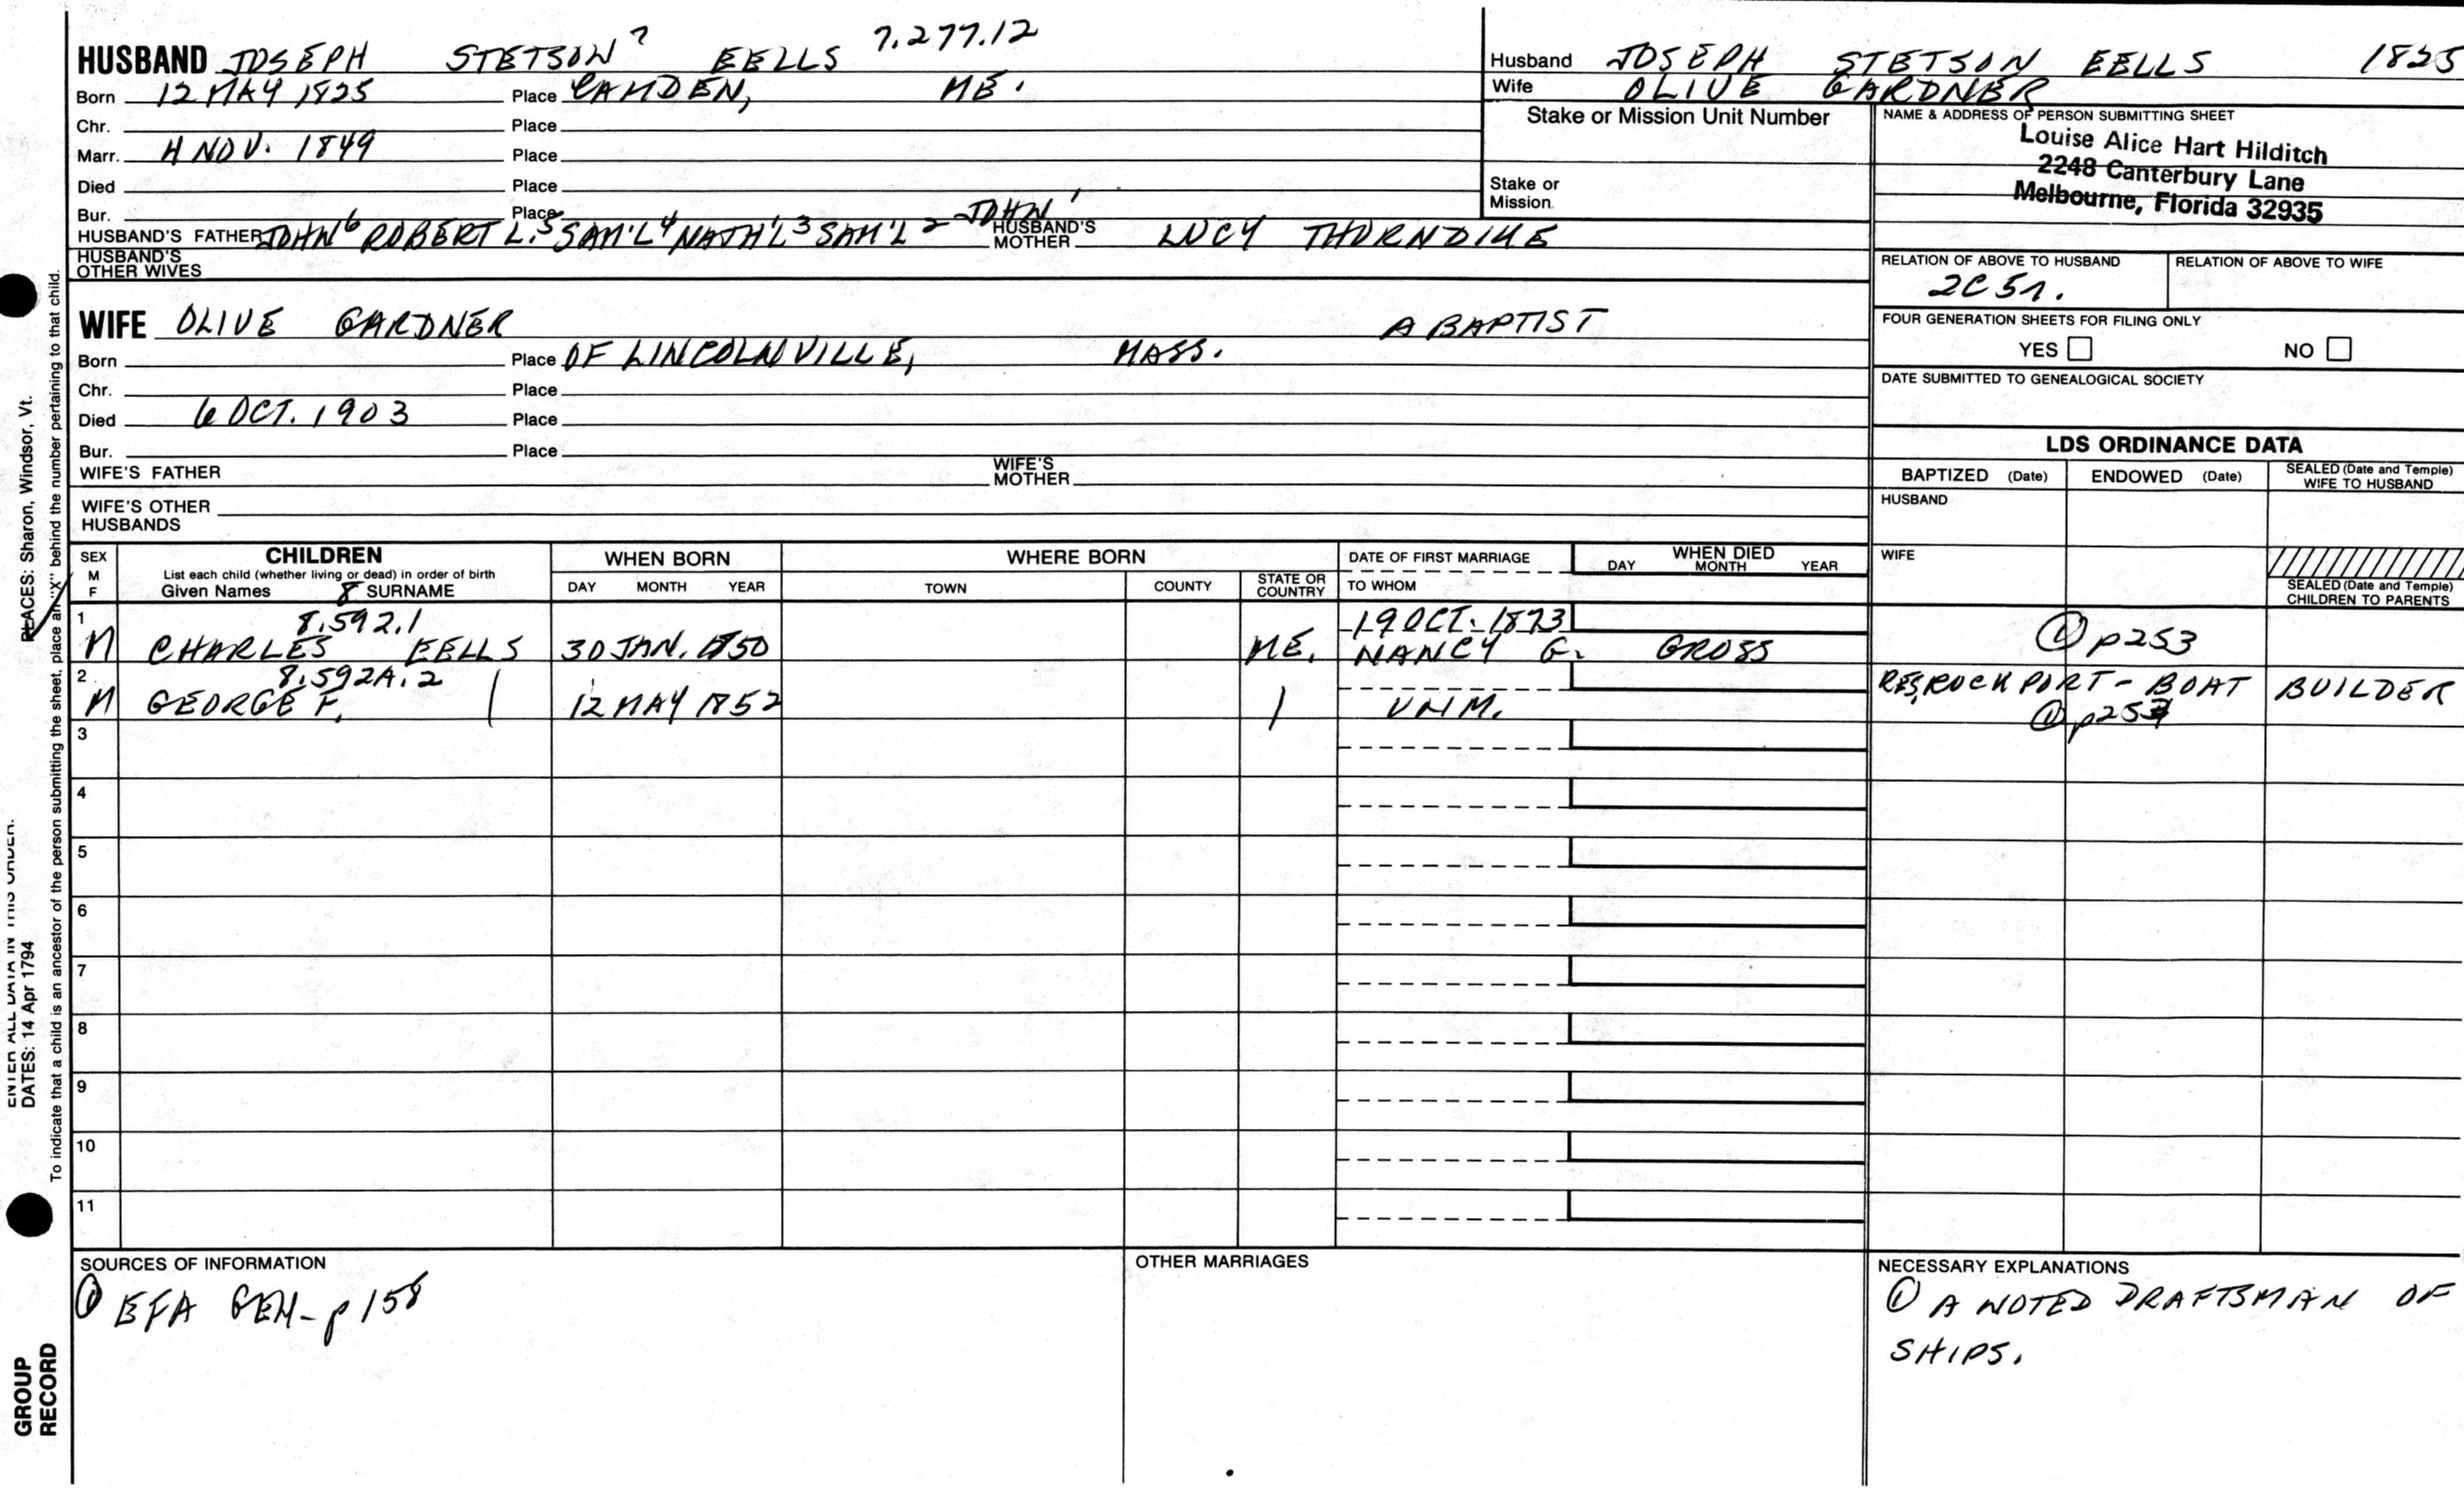 HUSBAND JOSEPH STETSON 7 EELLS 7.277.12
Born 12 MAY 1825 Place CAMDEN, ME.
Chr. Place
Marr. 4 NOV. 1849 Place
Died Place
Bur. Place
HUSBAND'S FATHER JOHN 6 ROBERT L. 5 SAM'L 4 NATH'L 3 SAM'L 2 JOHN 1 HUSBAND'S MOTHER LUCY THORNDIKE
HUSBAND'S OTHER WIVES
WIFE OLIVE GARDNER A BAPTIST
Born Place OF LINCOLNVILLE, MASS.
Chr. Place
Died 6 OCT. 1903 Place
Bur. Place
WIFE'S FATHER WIFE'S MOTHER
WIFE'S OTHER HUSBANDS
Husband JOSEPH STETSON EELLS 1825
Wife OLIVE GARDNER
Stake or Mission Unit Number
Stake or Mission
NAME & ADDRESS OF PERSON SUBMITTING SHEET
Louise Alice Hart Hilditch
2248 Canterbury Lane
Melbourne, Florida 32935
RELATION OF ABOVE TO HUSBAND RELATION OF ABOVE TO WIFE
2C5r.
FOUR GENERATION SHEETS FOR FILING ONLY
YES NO
DATE SUBMITTED TO GENEALOGICAL SOCIETY
LDS ORDINANCE DATA
BAPTIZED (Date) ENDOWED (Date) SEALED (Date and Temple) WIFE TO HUSBAND
HUSBAND
WIFE
SEALED (Date and Temple) CHILDREN TO PARENTS
SEX M F
CHILDREN
List each child (whether living or dead) in order of birth
Given Names 8 SURNAME
WHEN BORN
DAY MONTH YEAR
WHERE BORN
TOWN COUNTY STATE OR COUNTRY
DATE OF FIRST MARRIAGE
TO WHOM
WHEN DIED
DAY MONTH YEAR
1 8.592.1 19 OCT. 1873
M CHARLES EELLS 30 JAN. 1850 ME. NANCY G. GROSS ① p253
2 8.592A.2 RES, ROCKPORT - BOAT BUILDER
M GEORGE F. | 12 MAY 1852 | UNM. ① p253
3
4
5
6
7
8
9
10
11
SOURCES OF INFORMATION
① EFA GEN- p158
OTHER MARRIAGES
NECESSARY EXPLANATIONS
① A NOTED DRAFTSMAN OF
SHIPS.
PLACES: Sharon, Windsor, Vt.
To indicate that a child is an ancestor of the person submitting the sheet, place an "X" behind the number pertaining to that child.
ENTER ALL DATA IN THIS ORDER.
DATES: 14 Apr 1794
GROUP
RECORD